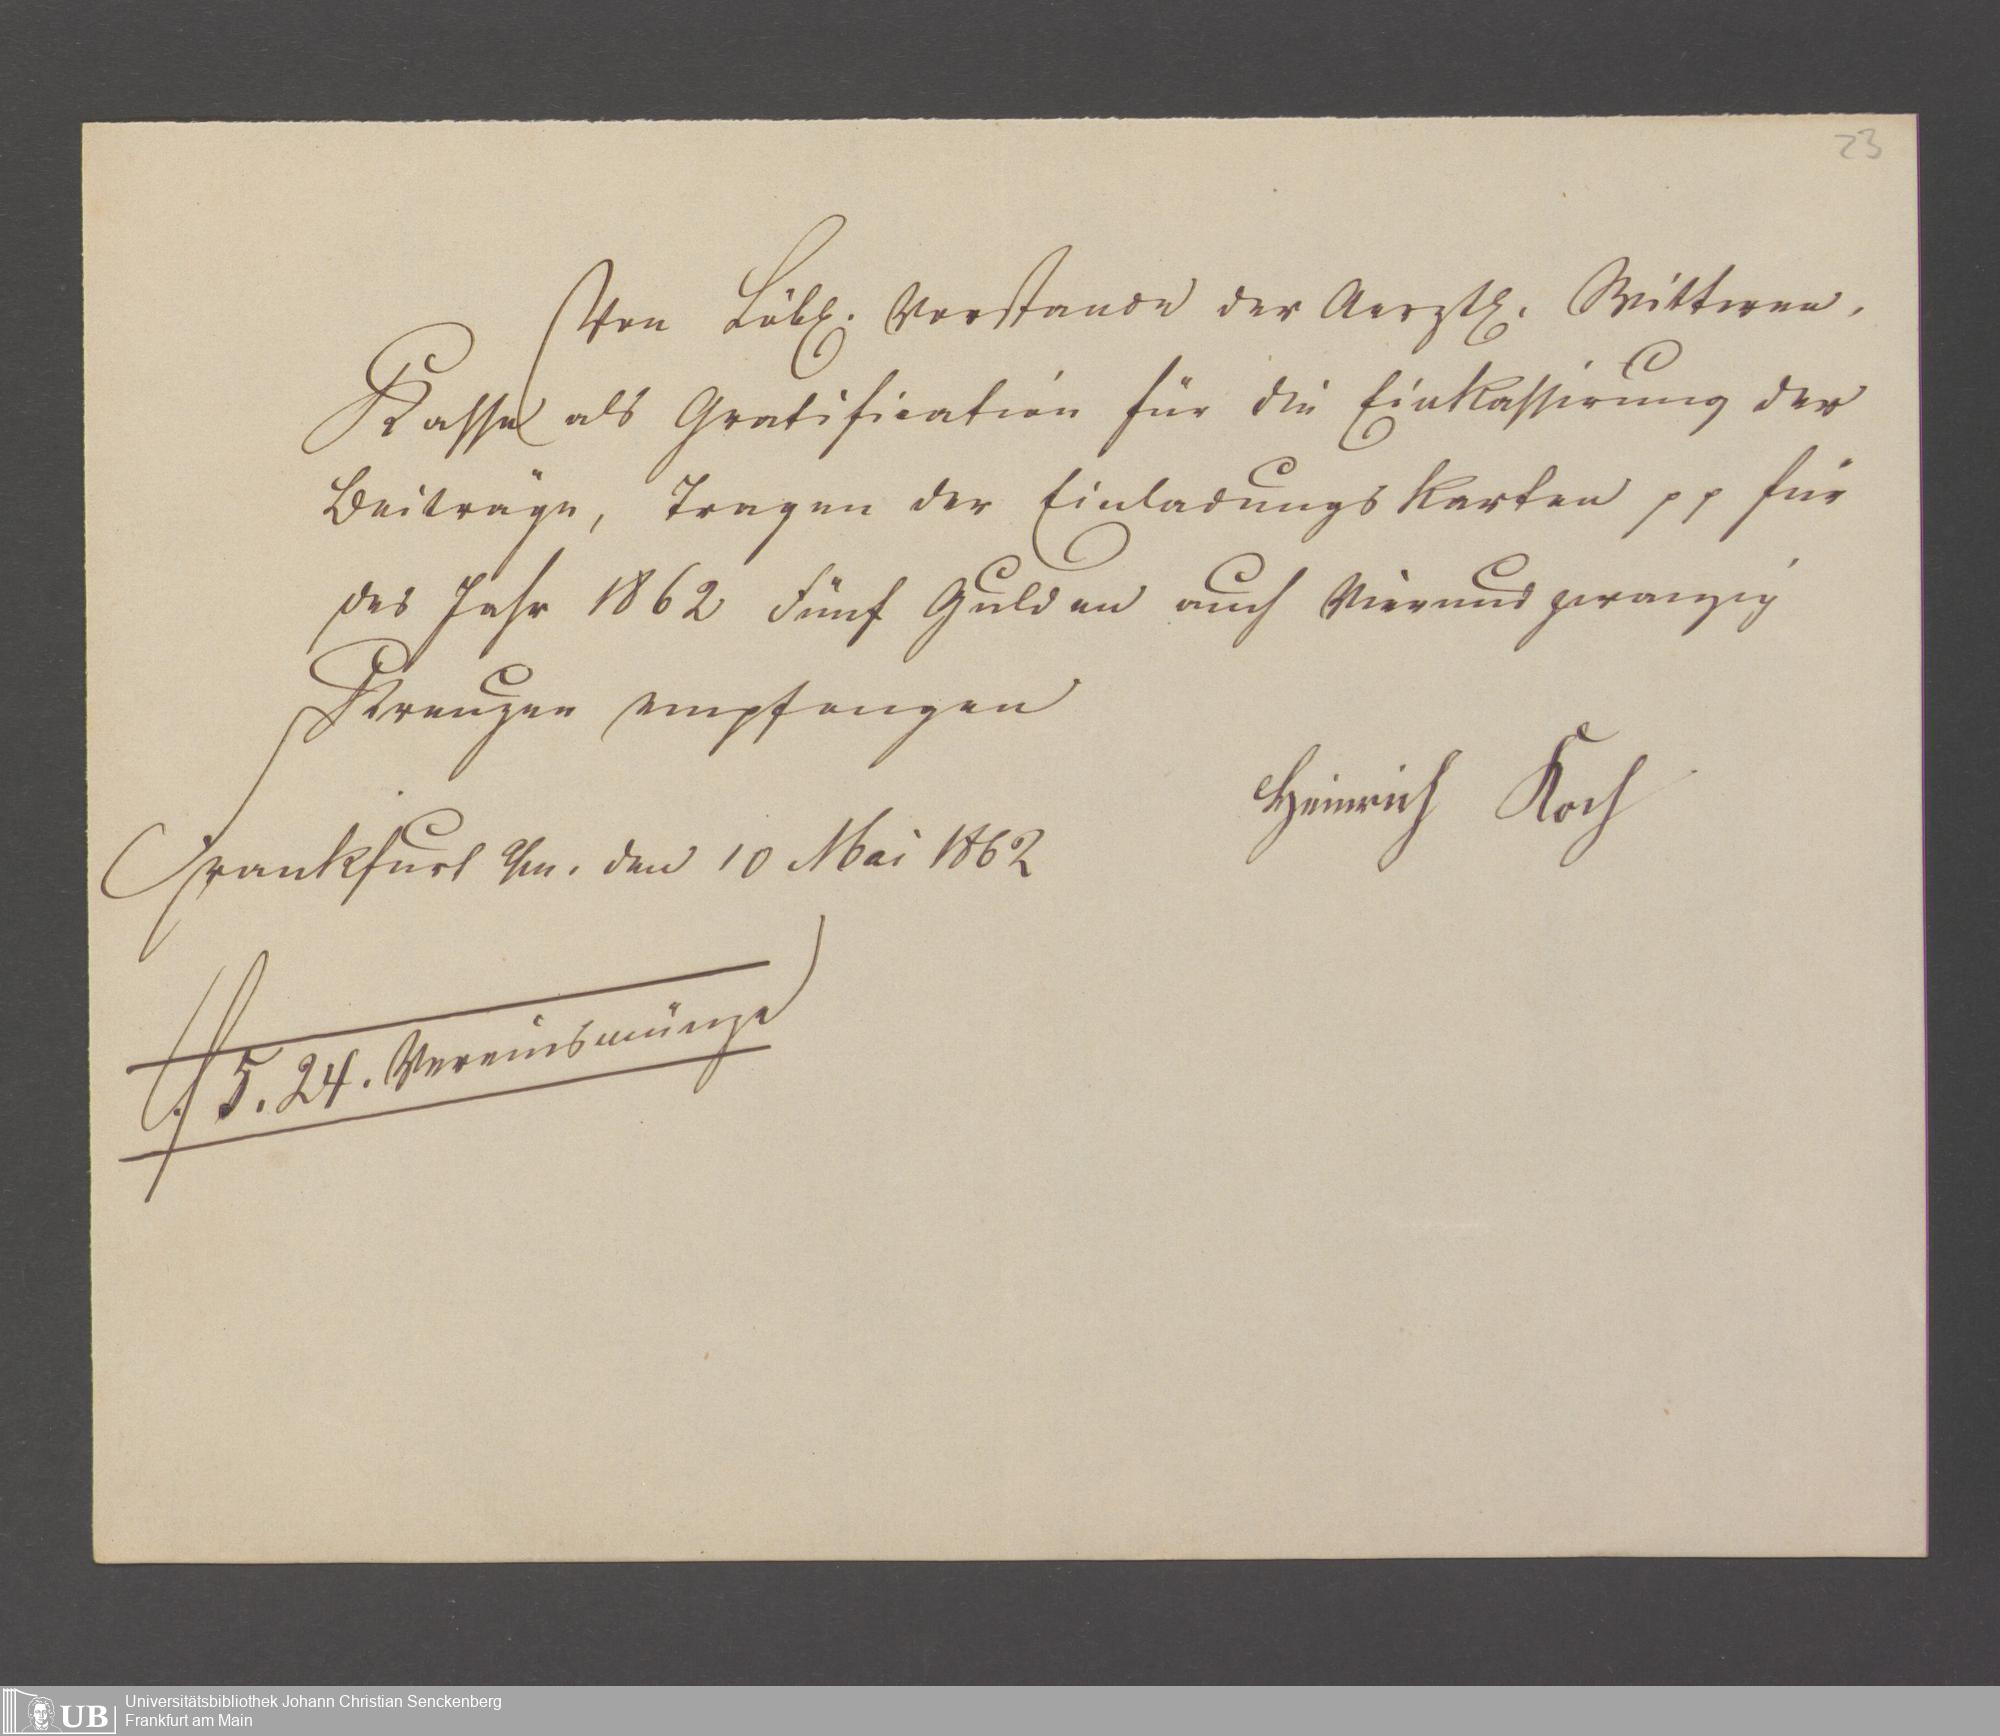 23
Von Löbl. Vorstande der Aerztl. Wittwen-
Kasse als Gratification für die Einkassirung der
Beiträge, Tragen der Einladungskarten pp für
das Jahr 1862 Fünf Gulden auch Vierundzwanzig
Kreuzer empfangen
Heinrich Koch
Frankfurt a/m. den 10 Mai 1862
fl. 5. 24. Vereinsmünze
UB Universitätsbibliothek Johann Christian Senckenberg
Frankfurt am Main